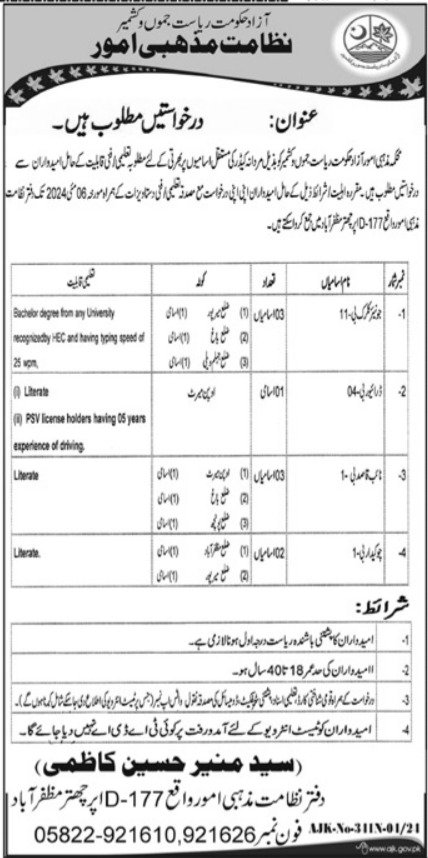 آزاد حکومت ریاست جموں و کشمیر
نظامت مذہبی امور
عنوان: درخواستیں مطلوب ہیں۔
محکمہ مذہبی امور آزاد حکومت ریاست جموں و کشمیر کو بذیل مردانہ کیڈر کی مستقل اسامیوں پر بھرتی کے لئے مطلوبہ تعلیمی/فنی قابلیت کے حامل امیدواران سے
درخواستیں مطلوب ہیں۔ مقررہ اہلیت/شرائط ذیل کے حامل امیدواران اپنی اپنی درخواست مع مصدقہ تعلیمی/فنی دستاویزات کے ہمراہ مورخہ 06 مئی 2024 تک دفتر نظامت
مذہبی امور واقع 177-D اپر چھتر مظفرآباد میں جمع کروا سکتے ہیں۔
نمبر شمار نام اسامیاں تعداد کوٹہ تعلیمی قابلیت
1- جونیئر کلرک بی-11 03 اسامیاں (1) ضلع میرپور (1) اسامی Bachelor degree from any University
(2) ضلع باغ (1) اسامی recognizedby HEC and having typing speed of
(3) ضلع جہلم ویلی (1) اسامی 25 wpm,
2- ڈرائیور بی-04 01 اسامی اوپن میرٹ (i) Literate
(ii) PSV license holders having 05 years
experience of driving.
3- نائب قاصد بی-1 03 اسامیاں (1) اوپن میرٹ (1) اسامی Literate
(2) ضلع باغ (1) اسامی
(3) ضلع پونچھ (1) اسامی
4- چوکیدار بی-1 02 اسامیاں (1) ضلع مظفرآباد (1) اسامی Literate.
(2) ضلع میرپور (1) اسامی
شرائط:
1- امیدواران کا پشتنی باشندہ ریاست درجہ اول ہونا لازمی ہے۔
2- امیدواران کی حد عمر 18 تا 40 سال ہو۔
3- درخواست کے ہمراہ قومی شناختی کارڈ، تعلیمی اسناد، پشتنی سرٹیفکیٹ، ڈومیسائل کی مصدقہ نقول، واٹس ایپ نمبر (جس پر ٹیسٹ انٹرویو کی اطلاع دی جا سکے شامل کرنا ہوں گے)۔
4- امیدواران کو ٹیسٹ انٹرویو کے لئے آمدورفت پر کوئی ٹی اے ڈی اے نہیں دیا جائے گا۔
(سید منیر حسین کاظمی)
دفتر نظامت مذہبی امور واقع 177-D اپر چھتر مظفرآباد
فون نمبر 05822-921610,921626
AJK-No-311N-01/24
www.ajk.gov.pk